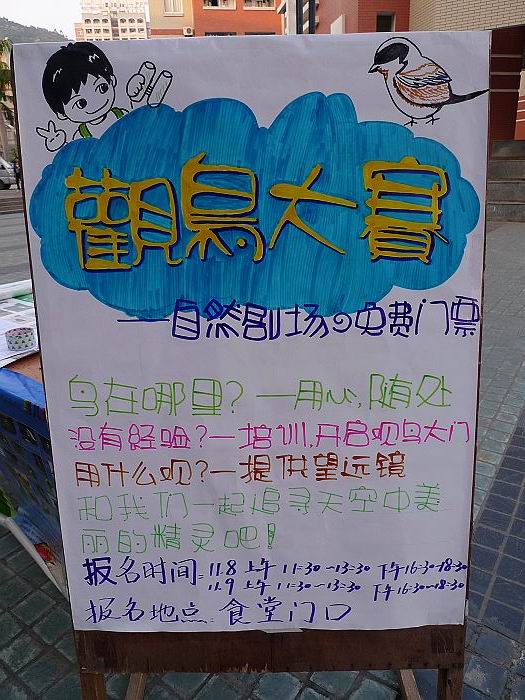 觀鳥大賽
——自然剧场の免费门票
鸟在哪里?—用心,随处
没有经验?—培训,开启观鸟大门
用什么观?—提供望远镜
和我们一起追寻天空中美
丽的精灵吧!
报名时间:11.8 上午 11:30~13:30 下午16:30~18:30
11.9 上午 11:30~13:30 下午16:30~18:30
报名地点:食堂门口